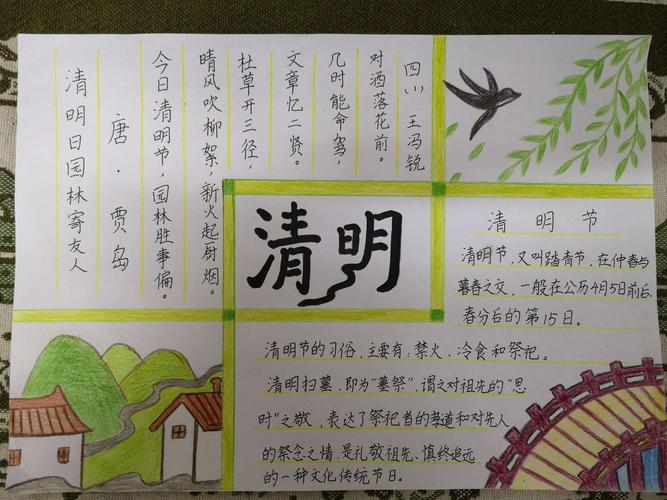 清明日园林寄友人
唐·贾岛
今日清明节，园林胜事偏。
晴风吹柳絮，新火起厨烟。
杜草开三径，
文章忆二贤。
几时能命驾，
对酒落花前。
四 王冯锐
清明
清明节
清明节，又叫踏青节，在仲春与
暮春之交，一般在公历4月5日前后，
春分后的第15日。
清明节的习俗，主要有：禁火、冷食和祭祀。
清明扫墓，即为“墓祭”，谓之对祖先的“思
时”之敬，表达了祭祀者的孝道和对先人
的祭念之情，是礼敬祖先、慎终追远
的一种文化传统节日。